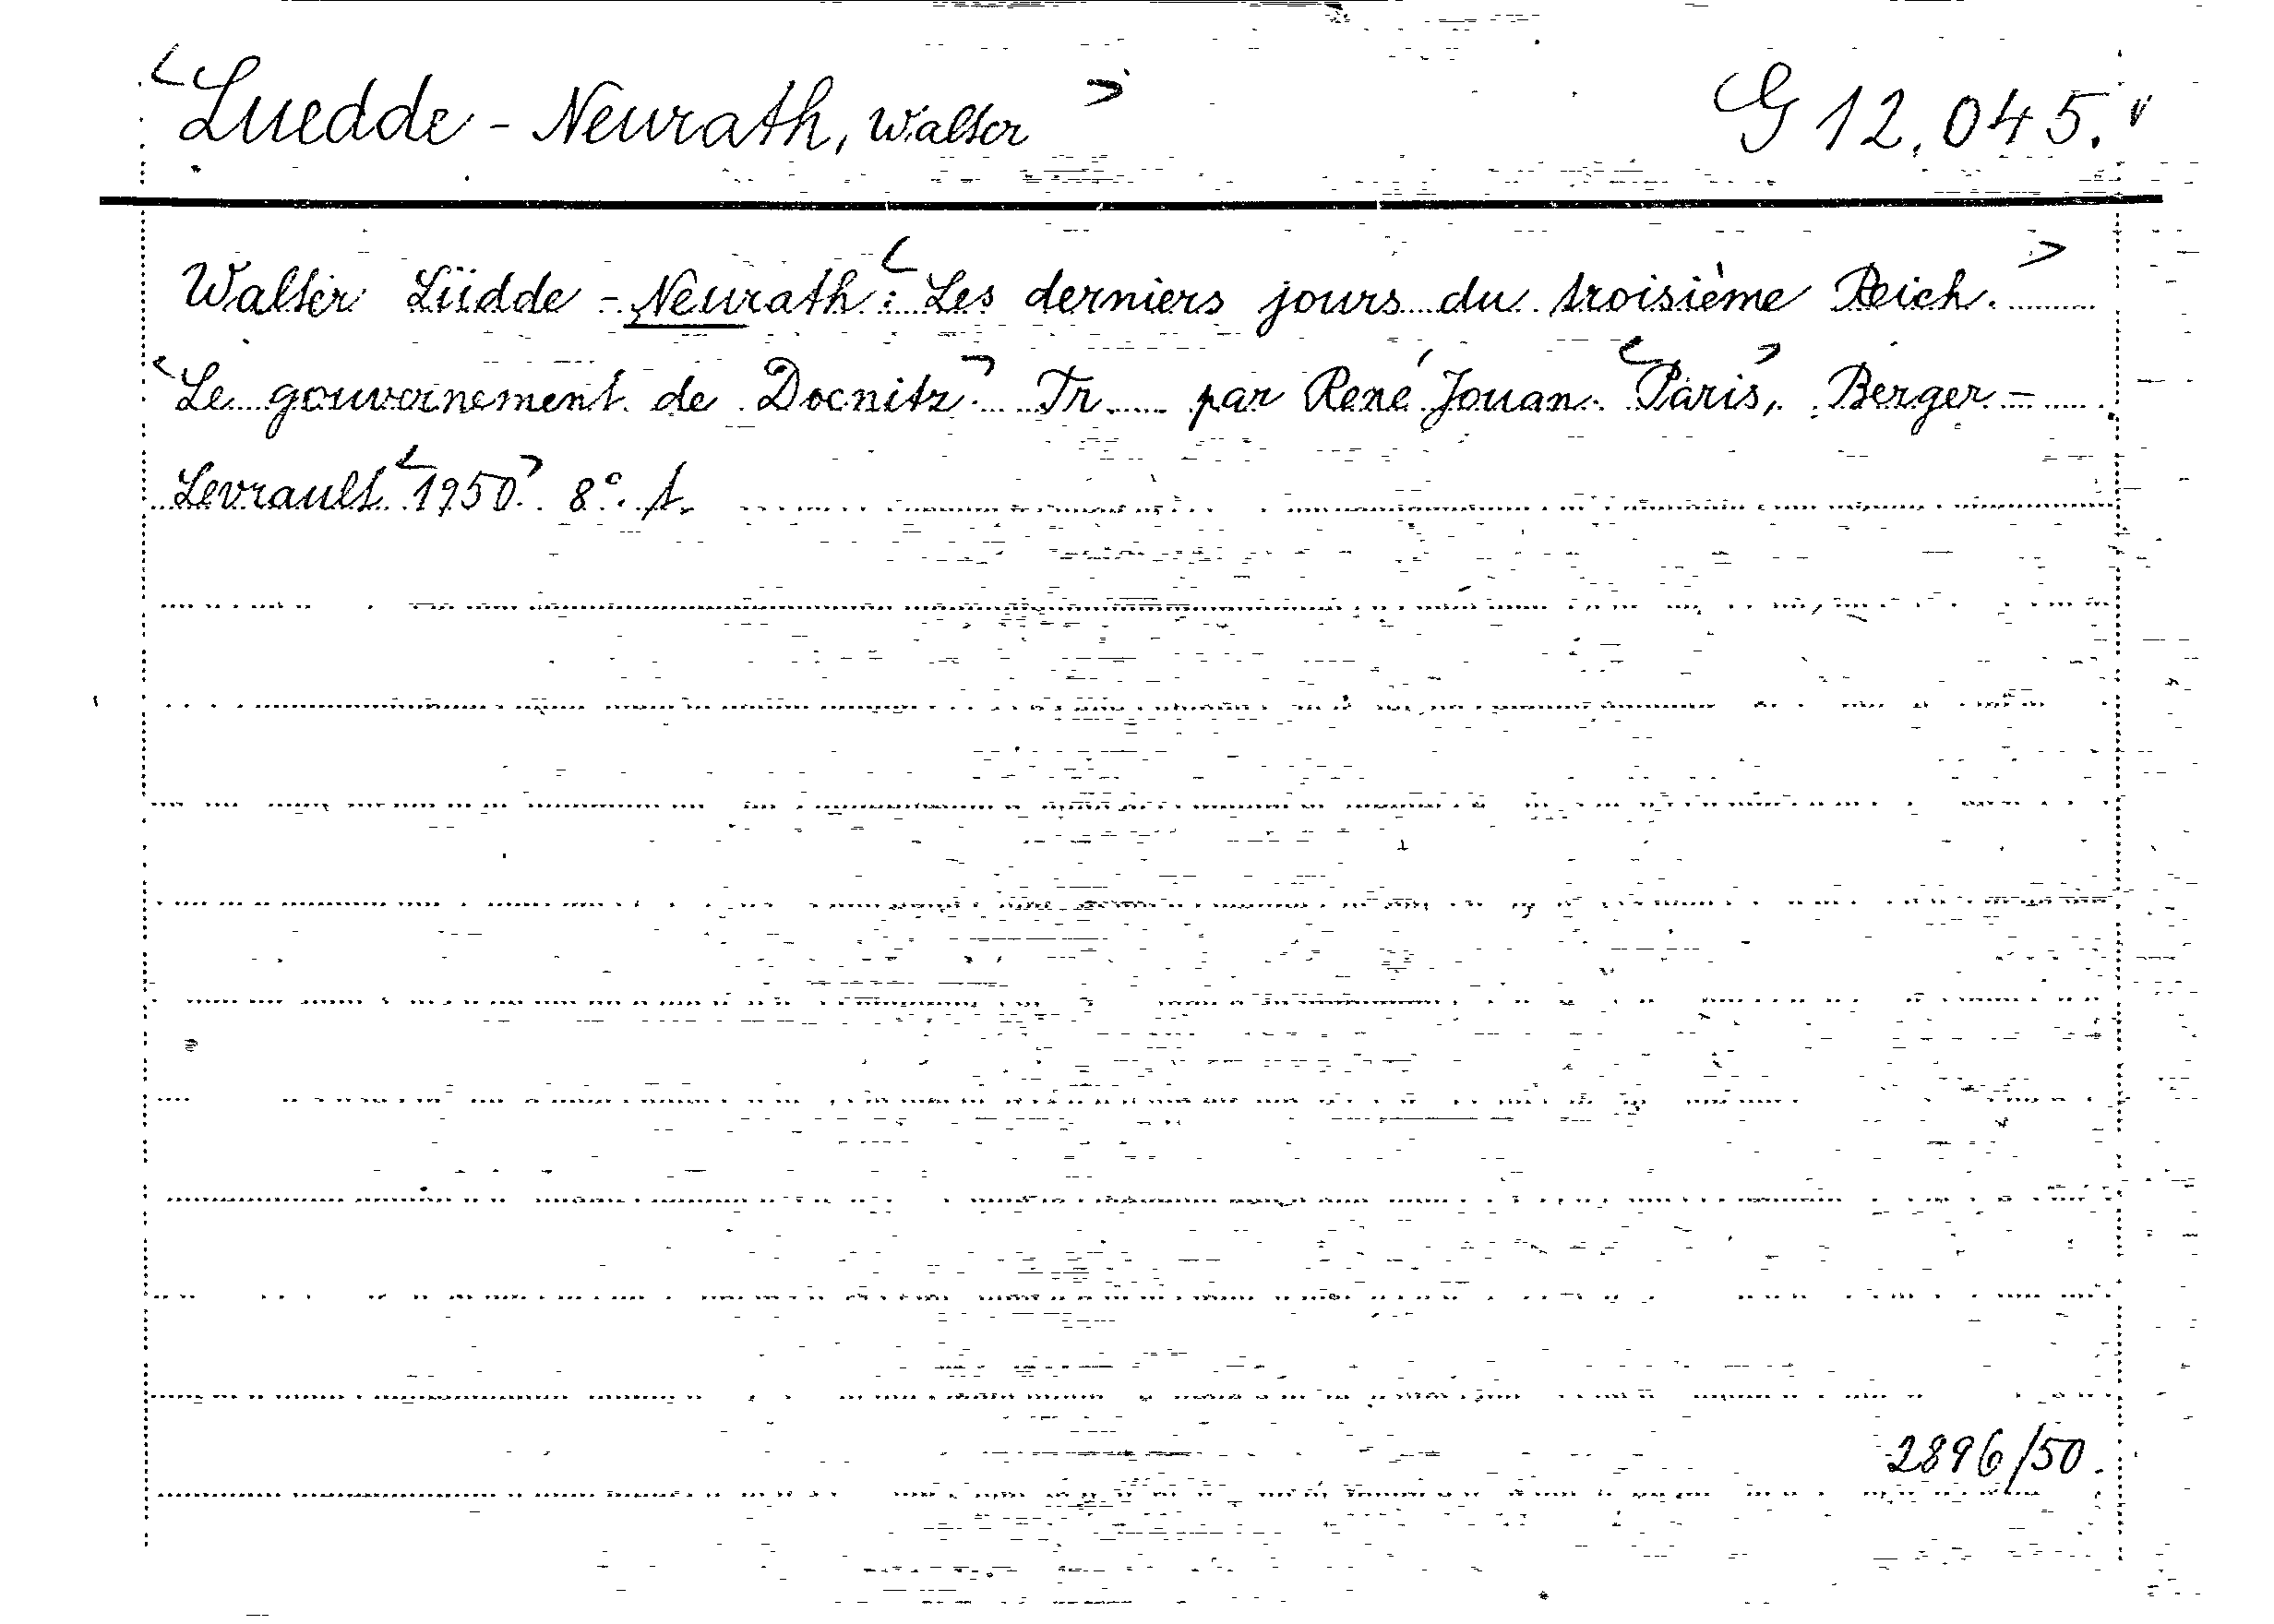 <Luedde-Neurath, Walter> G 12.045.
Walter Lüdde-Neurath: <Les derniers jours du troisième Reich.>
<Le gouvernement de Doenitz> Tr. par René Jouan. <Paris>, Berger-
Levrault <1950>. 8°. t.
2896/50.